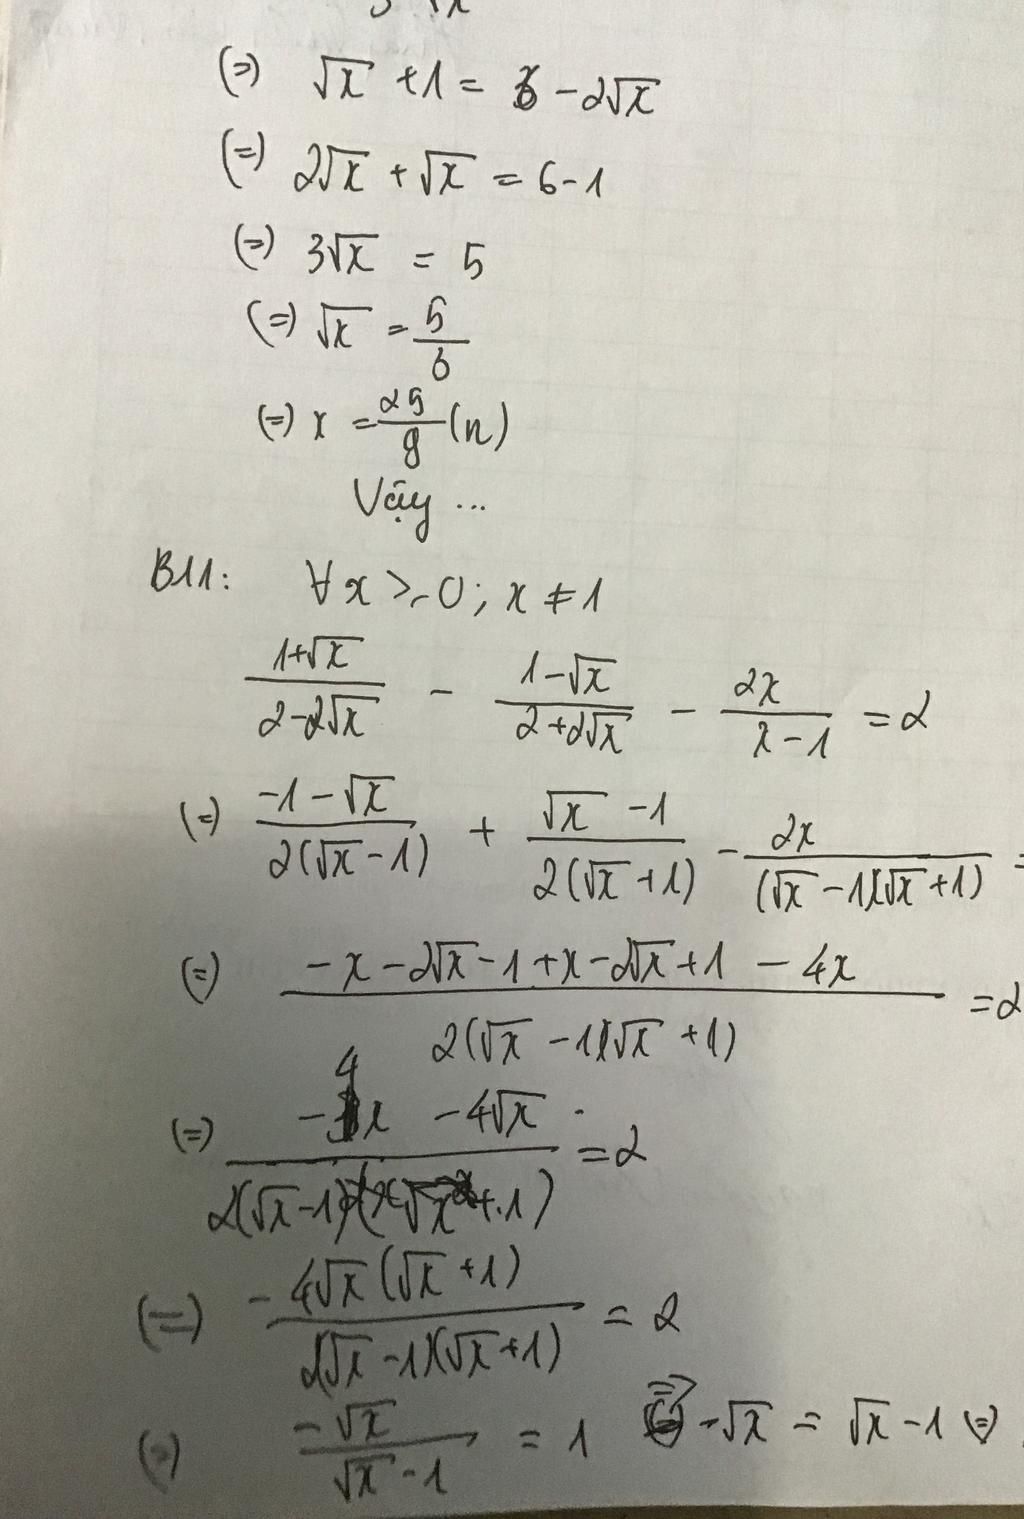 (=) √x + 1 = 6 - 2√x
(=) 2√x + √x = 6 - 1
(=) 3√x = 5
(=) √x = 5/3
(=) x = 25/9 (n)
Vậy ...
B11: ∀x ≥ 0; x ≠ 1
(1+√x)/(2-2√x) - (1-√x)/(2+2√x) - 2x/(x-1) = 2
(=) (-1-√x)/(2(√x-1)) + (√x-1)/(2(√x+1)) - 2x/((√x-1)(√x+1)) =
(=) (-x-2√x-1+x-2√x+1-4x)/(2(√x-1)(√x+1)) = 2
(=) (-4x-4√x)/(2(√x-1)(√x+1)) = 2
(=) -4√x(√x+1)/(2(√x-1)(√x+1)) = 2
(=) -√x/(√x-1) = 1 => -√x = √x - 1 (=)